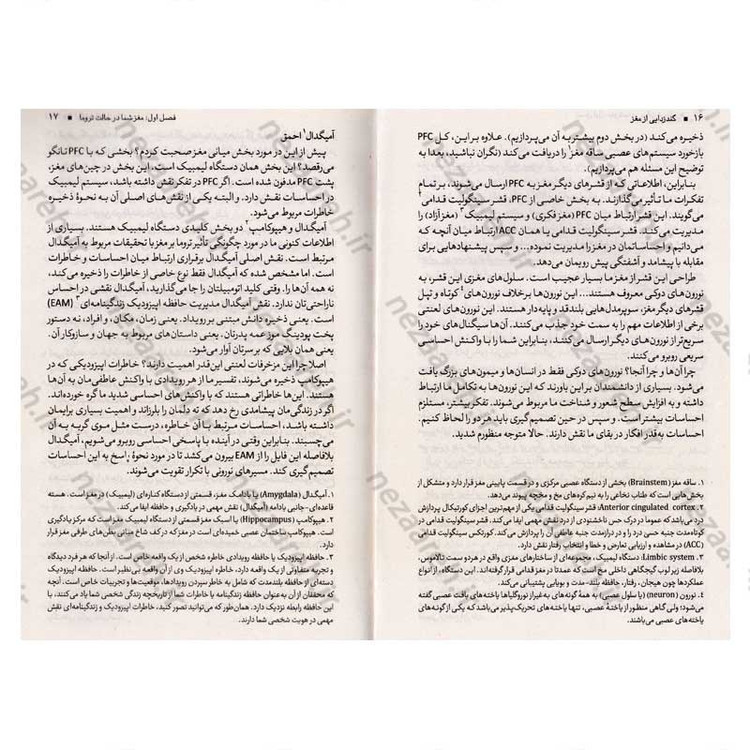 ۱۶ ■ گندزدایی از مغز
ذخیره می‌کند (در بخش دوم بیشتر به آن می‌پردازیم). علاوه بر این، کل PFC
بازخورد سیستم‌های عصبی ساقه مغز۱ را دریافت می‌کند (نگران نباشید، بعدا به
توضیح این مسئله هم می‌پردازیم).
بنابراین، اطلاعاتی که از قشرهای دیگر مغز به PFC ارسال می‌شوند، بر تمام
تفکرات ما تأثیر می‌گذارند. به بخش خاصی از PFC، قشر سینگولیت قدامی۲
می‌گویند. این قشر ارتباط میان PFC (مغز فکری) و سیستم لیمبیک۳ (مغز آزاد) را
مدیریت می‌کند. قشر سینگولیت قدامی یا همان ACC ارتباط میان آنچه که
می‌دانیم و احساساتمان در مغز را مدیریت نموده... و سپس پیشنهادهایی برای
مقابله با پیشامد و آشفتگی پیش رویمان می‌دهد.
طراحی این قشر از مغز ما بسیار عجیب است. سلول‌های مغزی این قشر، به
نورون‌های دوکی معروف هستند... این نورون‌ها برخلاف نورون‌های۴ کوتاه و تپل
قشرهای دیگر مغز، سوپرمدل‌هایی بلندقد و پایه‌دار هستند. این نورون‌های لعنتی
برخی از اطلاعات مهم را به سمت خود جذب می‌کنند. آن‌ها سیگنال‌های خود را
سریع‌تر از نورون‌های دیگر ارسال می‌کنند، بنابراین شما را با واکنش احساسی
سریعی روبرو می‌کنند.
چرا آن‌ها و چرا آنجا؟ نورون‌های دوکی فقط در انسان‌ها و میمون‌های بزرگ یافت
می‌شود. بسیاری از دانشمندان بر این باورند که این نورون‌ها به تکامل ما ارتباط
داشته و به افزایش سطح شعور و شناخت ما مربوط می‌شوند. تفکر بیشتر، مستلزم
احساسات بیشتر است. و سپس در حین تصمیم گیری باید هر دو را لحاظ کنیم.
احساسات به‌قدر افکار در بقای ما نقش دارند. حالا متوجه منظورم شدید.
۱. ساقه مغز (Brainstem) بخشی از دستگاه عصبی مرکزی و در قسمت پایینی مغز قرار دارد و متشکل از
بخش‌هایی است که طناب نخاعی را به نیم‌کره‌های مخ و مخچه پیوند می‌دهد.
۲. Anterior cingulated cortex: قشر سینگولیت قدامی یکی از مهم‌ترین اجزای کورتیکال پردازش
درد می‌باشد که عموما در درک حس ناخشنودی از درد نقش مهمی ایفا می‌کند. قشر سینگولیت قدامی در
کوتاه‌مدت جنبه حسی درد را و در درازمدت جنبه عاطفی آن را پردازش می‌کند. کورتکس سینگولیت قدامی
(ACC) در مشاهده و ارزیابی تعارض و خطا و انتخاب رفتار نقش دارد.
۳. Limbic system: دستگاه کناره‌ای مجموعه‌ای از ساختارهای مغزی واقع در هر دو سمت تالاموس،
بلافاصله زیر لوب گیجگاهی داخلی مخ است که عمدتا در مغز قدامی قرار گرفته‌اند. این دستگاه، از انواع
عملکردها چون هیجان، رفتار، حافظه بلند- مدت و بویایی پشتیبانی می‌کند.
۴. نورون (neuron) (یا سلول عصبی) به همهٔ گونه‌های به‌غیر از نوروگلیاها یاخته‌های بافت عصبی گفته
می‌شود؛ ولی گاهی منظور از یاختهٔ عصبی، تنها یاخته‌های تحریک‌پذیر می‌باشد که یکی از گونه‌های
یاخته‌های عصبی می‌باشند.
فصل اول: مغز شما در حالت تروما ■ ۱۷
آمیگدال۱ احمق
پیش از این در مورد بخش میانی مغز صحبت کردم؟ بخشی که با PFC تانگو
می‌رقصد؟ این بخش همان دستگاه لیمبیک است. این بخش در چین‌های مغز،
پشت PFC مدفون شده است. اگر PFC در تفکر نقش داشته باشد، سیستم لیمبیک
در احساسات نقش دارد. و البته یکی از نقش‌های اصلی آن به نحوهٔ ذخیره
خاطرات مربوط می‌شود.
آمیگدال و هیپوکامپ۲ دو بخش کلیدی دستگاه لیمبیک هستند. بسیاری از
اطلاعات کنونی ما در مورد چگونگی تأثیر تروما بر مغز با تحقیقات مربوط به آمیگدال
مرتبط است. نقش اصلی آمیگدال برقراری ارتباط میان احساسات و خاطرات
است. اما مشخص شده که آمیگدال فقط نوع خاصی از خاطرات را ذخیره می‌کند،
نه همه آن‌ها را. وقتی کلید اتومبیلتان را جا می‌گذارید، آمیگدال نقشی در احساس
ناراحتی‌تان ندارد. نقش آمیگدال مدیریت حافظه اپیزودیک زندگینامه‌ای۳ (EAM)
است. یعنی ذخیره دانش مبتنی بر رویداد. یعنی زمان، مکان، و افراد، نه دستور
پخت پودینگ موز عمه پدرتان. یعنی داستان‌های مربوط به جهان و سازوکار آن.
یعنی همان بلایی که بر سرتان آوار می‌شود.
اصلا چرا این مزخرفات لعنتی این‌قدر اهمیت دارند؟ خاطرات اپیزودیکی که در
هیپوکامپ ذخیره می‌شوند، تفسیر ما از هر رویدادی با واکنش عاطفی‌مان به آن‌ها
هستند. این‌ها خاطراتی هستند که با واکنش‌های احساسی شدید ما گره خورده‌اند.
اگر در زندگی‌مان پیشامدی رخ دهد که ته دلمان را بلرزاند و اهمیت بسیاری برایمان
داشته باشد، احساسات مرتبط با آن خاطره، درست مثل موی گربه به آن
می‌چسبند. بنابراین وقتی در آینده با پاسخی احساسی روبرو می‌شویم، آمیگدال
بلافاصله این فایل را از EAM بیرون می‌کشد تا در مورد نحوهٔ پاسخ به این احساسات
تصمیم‌گیری کند. مسیرهای نورونی با تکرار تقویت می‌شوند.
۱. آمیگدال (Amygdala) یا بادامک مغز، قسمتی از دستگاه کناره‌ای (لیمبیک) در مغز است. هسته
قاعده‌ای-جانبی بادامه (آمیگدال) نقش مهمی در یادگیری و حافظه ایفا می‌کند.
۲. هیپوکامپ (Hippocampus) یا اسبک مغز، قسمتی از دستگاه لیمبیک مغز است که مرکز یادگیری
است. هیپوکامپ ساختمان عصبی خمیده‌ای در مغز که در کف شاخ میانی بطن های طرفی مغز قرار
دارد.
۳. حافظه اپیزودیک یا حافظه رویدادی خاطره شخص از یک واقعه خاص است. از آنجایی که هر فرد دیدگاه
و تجربه متفاوتی از یک واقعه دارد، خاطره اپیزودیک وی از آن واقعه بی‌نظیر است. حافظه اپیزودیک
دسته‌ای از حافظه بلندمدت که شامل به خاطر سپردن رویدادها، موقعیت‌ها و تجربیات خاص است.
که محققان از آن به عنوان حافظه زندگینامه یا خاطرات شما از تاریخچه زندگی شخصی شما یاد می کنند، با
این حافظه رابطه نزدیک دارد. همان‌طور که می‌توانید تصور کنید، خاطرات اپیزودیک و زندگینامه‌ای نقش
مهمی در هویت شخصی شما دارند.